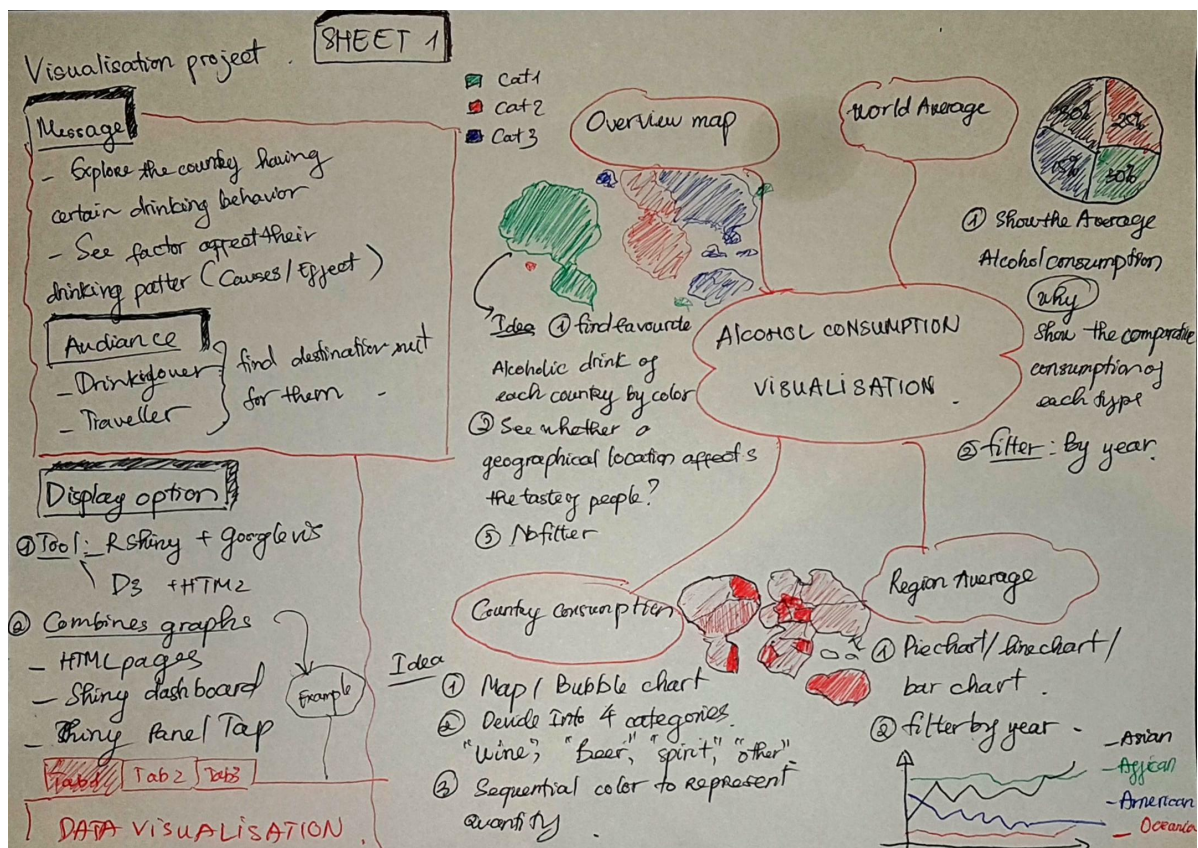 Visualisation project.
SHEET 1
Message
- Explore the country having
certain drinking behavior
- See factor affect their
drinking patter (Causes/Effect)
Audiance
- Drinking lover
- Traveller
find destination suit
for them -
Display option
① Tool: R Shiny + googlevis
D3 + HTML
② Combines graphs
- HTML pages
- Shiny dashboard
- Shiny Panel Tap
Example
Tab1 Tab2 Tab3
DATA VISUALISATION
Cat1
Cat2
Cat3
Overview map
Idea ① find favourate
Alcoholic drink of
each country by color
② See whether a
geographical location affects
the taste of people?
③ No filter
World Average
30% 25%
15% 30%
① Show the Average
Alcohol consumption
why
Show the comparative
consumption of
each type
② filter: By year.
ALCOHOL CONSUMPTION
VISUALISATION.
Country Consumption
Idea
① Map / Bubble chart
② Devide Into 4 categories.
"Wine", "Beer", "spirit", "other"
③ Sequential color to represent
quantity.
Region Average
① Piechart / linechart /
bar chart.
② filter by year -
- Asian
- African
- American
- Oceania